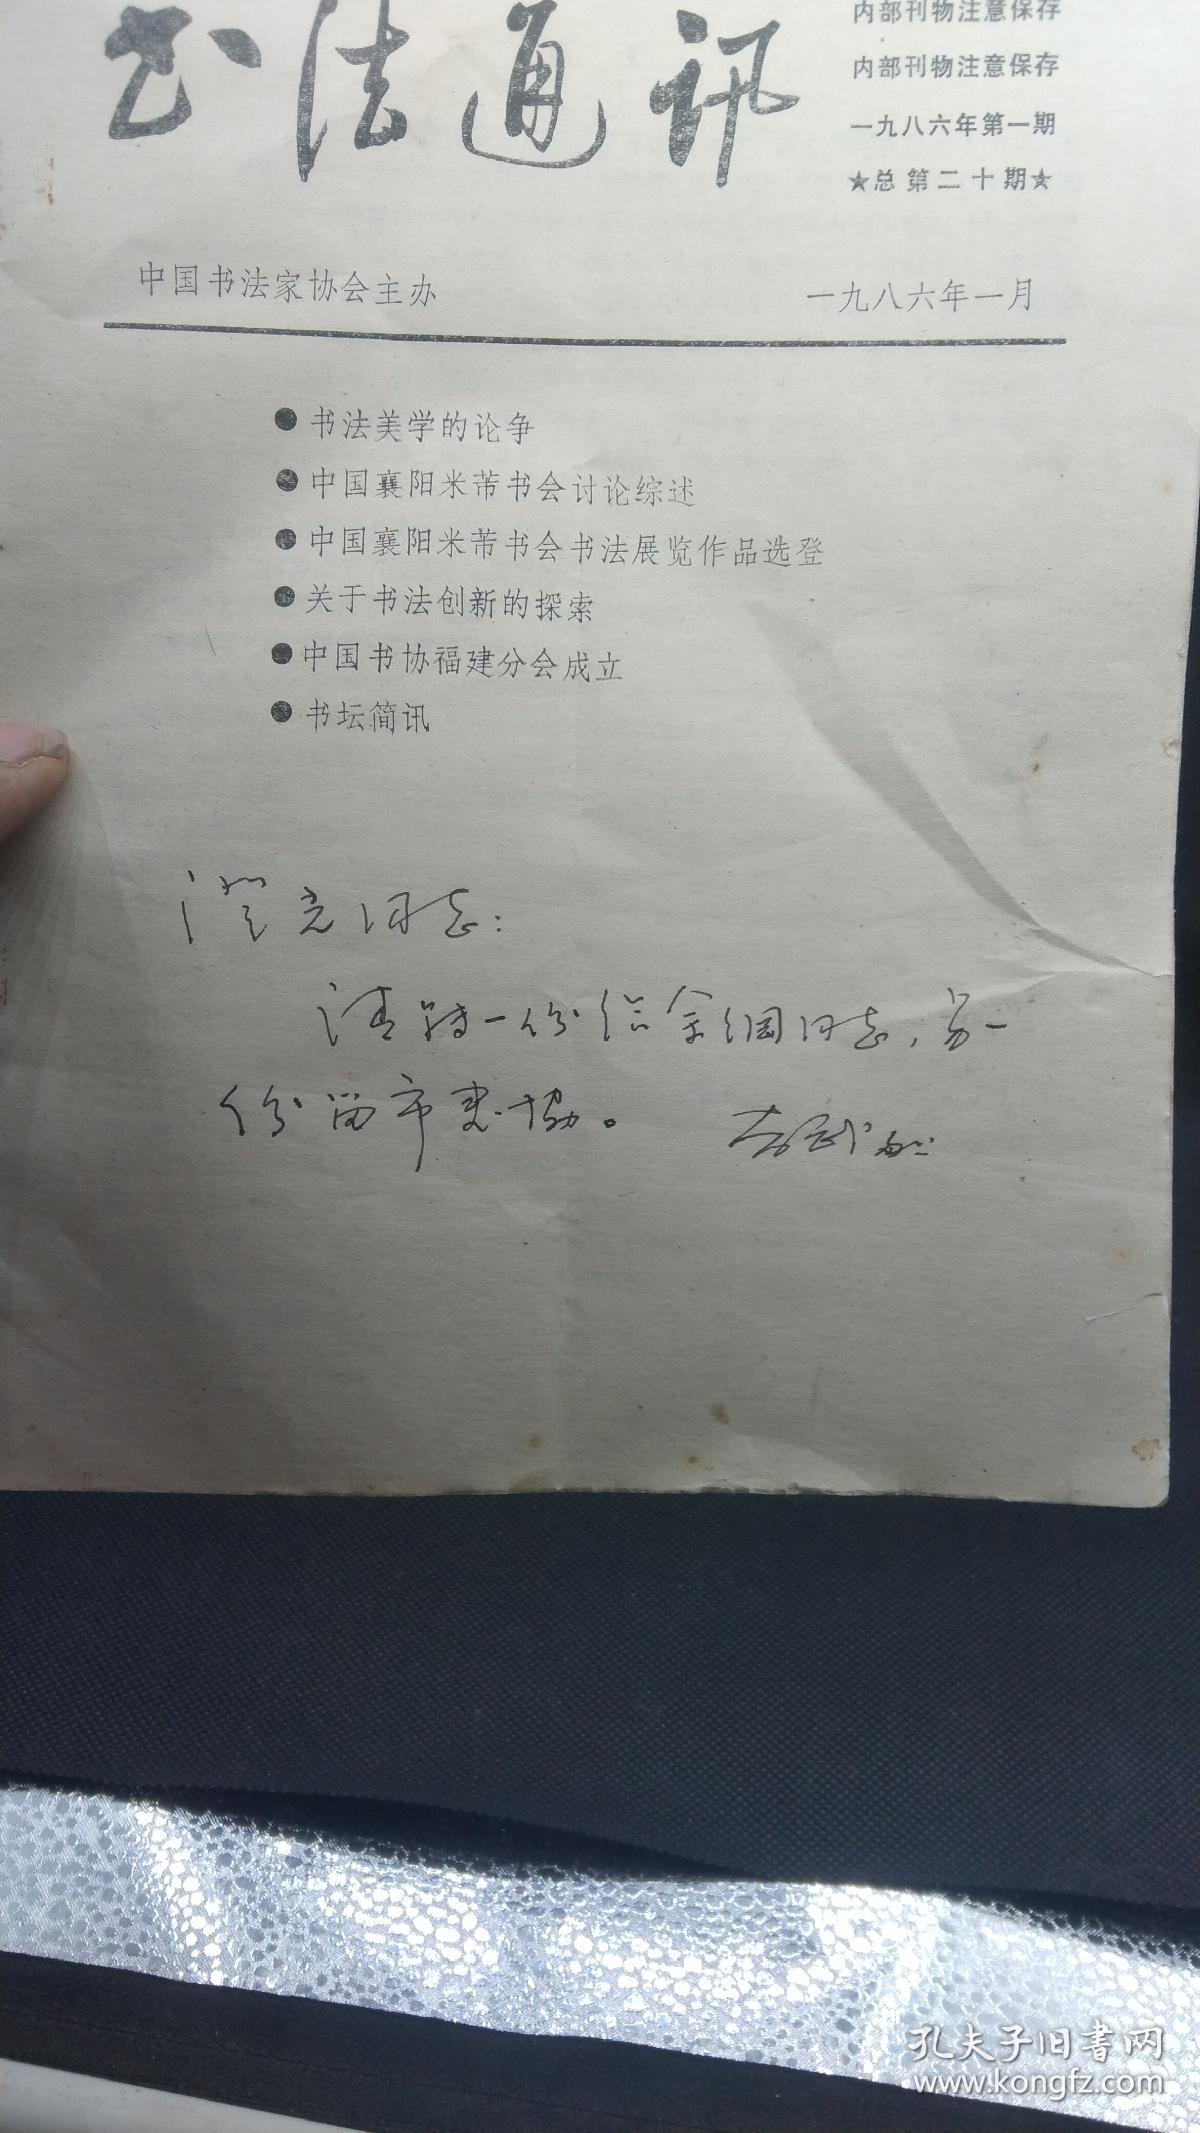 内部刊物注意保存
书法通讯
内部刊物注意保存
一九八六年第一期
★总第二十期★
中国书法家协会主办
一九八六年一月
●书法美学的论争
●中国襄阳米芾书会讨论综述
●中国襄阳米芾书会书法展览作品选登
●关于书法创新的探索
●中国书协福建分会成立
●书坛简讯
澄光同志：
请转一份给余纲同志，另一
份留市书协。
孔夫子旧书网
www.kongfz.com